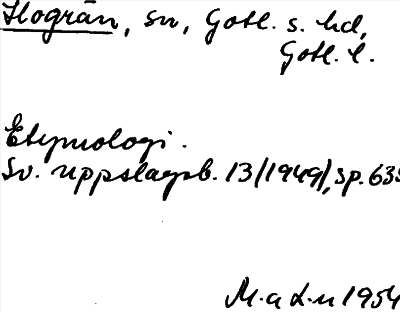 Hogrän, sn, Gotl. s. hd,
Gotl. l.
Etymologi.
Sv. uppslagsb. 13 (1949), sp. 635
M. a L-n 1954